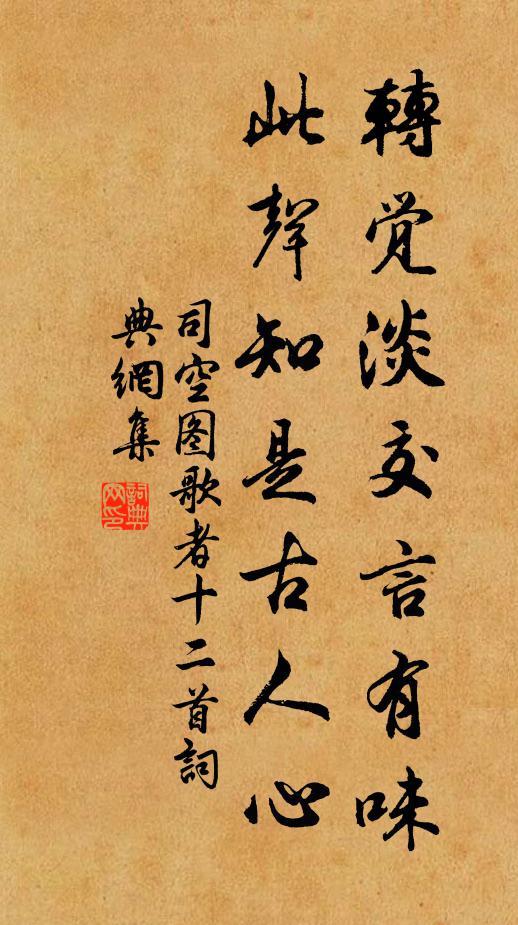 轉覺淡交言有味
此聲知是古人心
司空图歌者十二首詞
典網集
詞典
网印